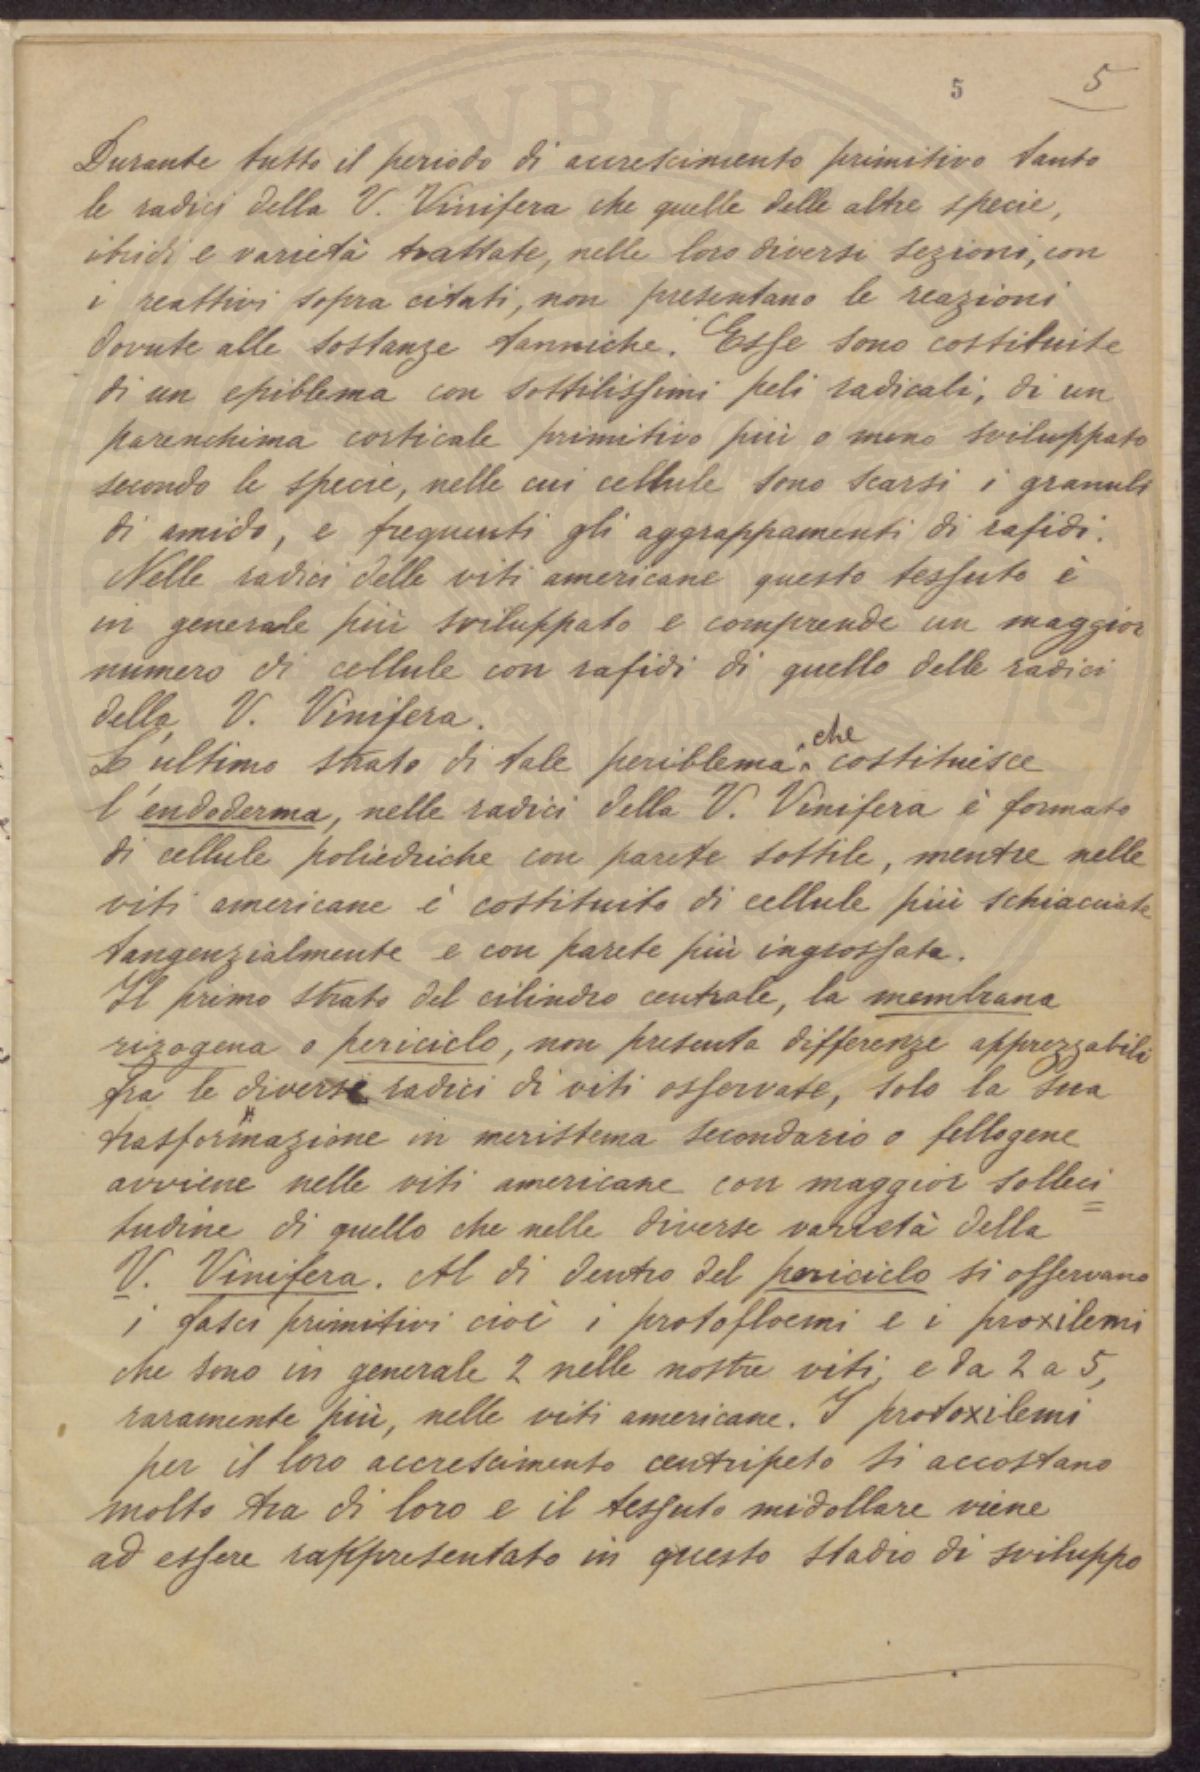 5 5
Durante tutto il periodo di accrescimento primitivo tanto
le radici della V. Vinifera che quelle delle altre specie,
ibridi e varietà trattate, nelle loro diversi sezioni, con
i reattivi sopra citati, non presentano le reazioni
dovute alle sostanze tanniche. Esse sono costituite
di un epiblema con sottilissimi peli radicali, di un
parenchima corticale primitivo più o meno sviluppato
secondo le specie, nelle cui cellule sono scarsi i granuli
di amido, e frequenti gli aggrappamenti di rafidi.
Nelle radici delle viti americane questo tessuto è
in generale più sviluppato e comprende un maggior
numero di cellule con rafidi di quello delle radici
della V. Vinifera.
L'ultimo strato di tale periblema che costituisce
l'endoderma, nelle radici della V. Vinifera è formato
di cellule poliedriche con parete sottile, mentre nelle
viti americane è costituito di cellule più schiacciate
tangenzialmente e con parete più ingrossata.
Il primo strato del cilindro centrale, la membrana
rizogena o periciclo, non presenta differenze apprezzabili
fra le diverse radici di viti osservate, solo la sua
trasformazione in meristema secondario o fellogene
avviene nelle viti americane con maggior solleci
tudine di quello che nelle diverse varietà della
V. Vinifera. Al di dentro del periciclo si osservano
i fasci primitivi cioè i protofloemi e i proxilemi
che sono in generale 2 nelle nostre viti, e da 2 a 5,
raramente più, nelle viti americane. I protoxilemi
per il loro accrescimento centripeto si accostano
molto tra di loro e il tessuto midollare viene
ad essere rappresentato in questo stadio di sviluppo